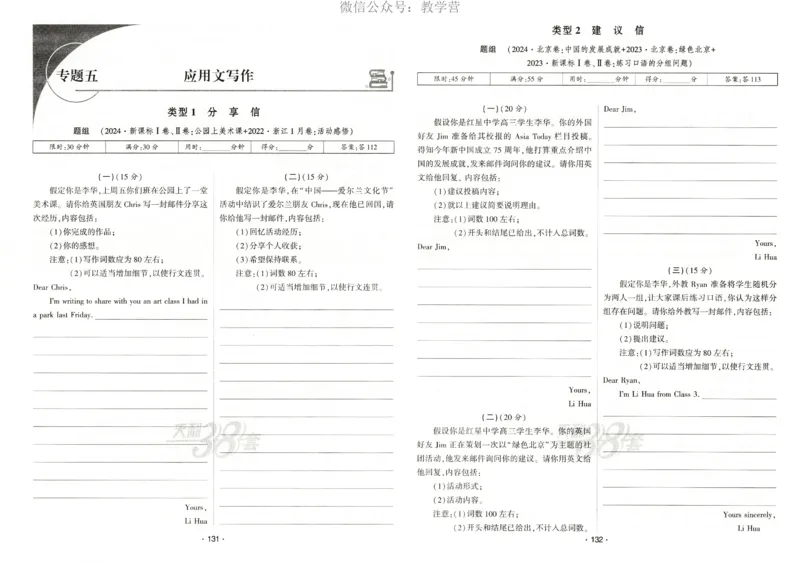 微信公众号：教学营
专题五
应用文写作
类型 1 分 享 信
题组 (2024·新课标Ⅰ卷、Ⅱ卷;公园上美术课+2022·浙江1月卷;活动感悟)
限时:30 分钟 满分:30 分 用时:______分钟 得分:______分 答案:答 112
(一)(15 分)
假定你是李华,上周五你们班在公园上了一堂
美术课。请你给英国朋友 Chris 写一封邮件分享这
次经历,内容包括:
(1)你完成的作品;
(2)你的感想。
注意:(1)写作词数应为 80 左右;
(2)可以适当增加细节,以使行文连贯。
Dear Chris,
I'm writing to share with you an art class I had in
a park last Friday.
Yours,
Li Hua
(二)(15 分)
假定你是李华,在“中国——爱尔兰文化节”
活动中结识了爱尔兰朋友 Chris,现在他已回国,请
你给他写一封邮件,内容包括:
(1)回忆活动经历;
(2)分享个人收获;
(3)希望保持联系。
注意:(1)词数 80 左右;
(2)可适当增加细节,以使行文连贯。
天利38套
· 131 ·
类型 2 建 议 信
题组 (2024·北京卷;中国的发展成就+2023·北京卷;绿色北京+
2023·新课标Ⅰ卷、Ⅱ卷;练习口语的分组问题)
限时:45 分钟 满分:55 分 用时:______分钟 得分:______分 答案:答 113
(一)(20 分)
假设你是红星中学高三学生李华。你的外国
好友 Jim 准备给其校报的 Asia Today 栏目投稿。
得知今年新中国成立 75 周年,他打算重点介绍中
国的发展成就,发来邮件询问你的建议。请你用英
文给他回复。内容包括:
(1)建议投稿内容;
(2)就以上建议简要说明理由。
注意:(1)词数 100 左右;
(2)开头和结尾已给出,不计入总词数。
Dear Jim,
Yours,
Li Hua
(二)(20 分)
假设你是红星中学高三学生李华。你的英国
好友 Jim 正在策划一次以“绿色北京”为主题的社
团活动,他发来邮件询问你的建议。请你用英文给
他回复,内容包括:
(1)活动形式;
(2)活动内容。
注意:(1)词数 100 左右;
(2)开头和结尾已给出,不计入总词数。
Dear Jim,
Yours,
Li Hua
(三)(15 分)
假定你是李华,外教 Ryan 准备将学生随机分
为两人一组,让大家课后练习口语,你认为这样分
组存在问题。请你给外教写一封邮件,内容包括:
(1)说明问题;
(2)提出建议。
注意:(1)写作词数应为 80 左右;
(2)可以适当增加细节,以使行文连贯。
Dear Ryan,
I'm Li Hua from Class 3.
Yours sincerely,
Li Hua
38套
· 132 ·